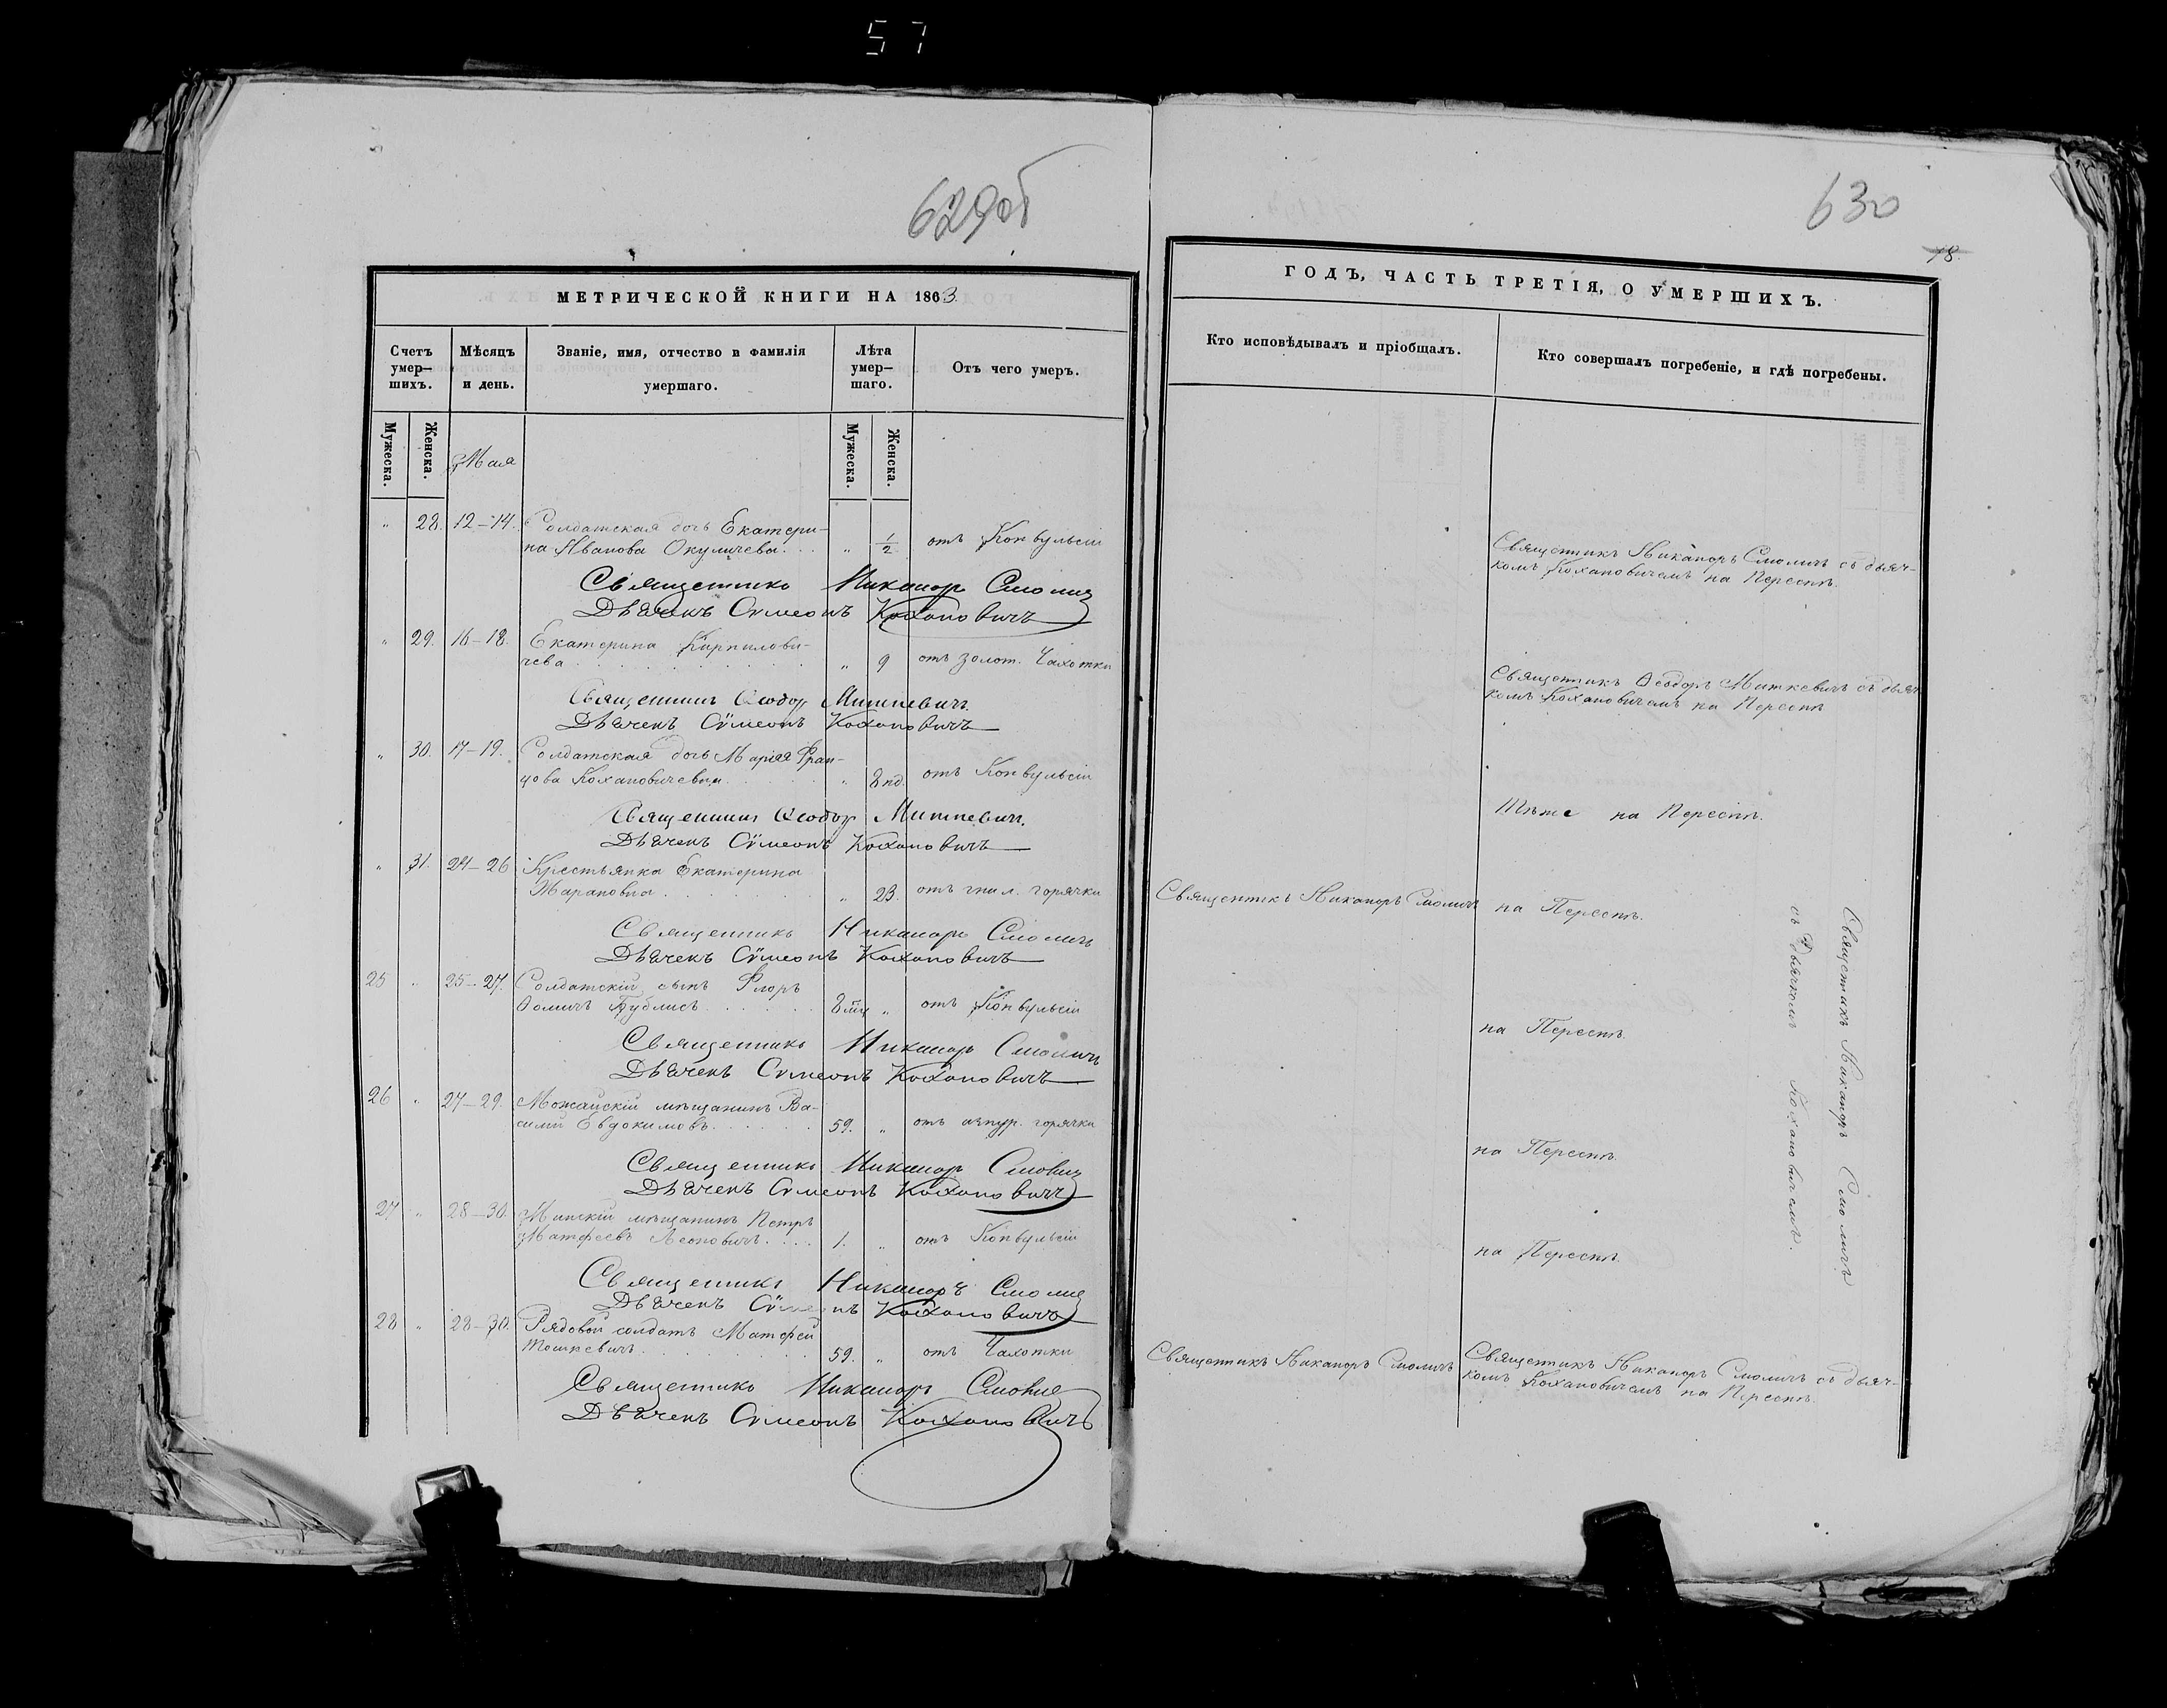 57
629об
МЕТРИЧЕСКОЙ КНИГИ НА 1863
Счетъ умер—шихъ.
Мѣсяцъ и день.
Званіе, имя, отчество и фамилія умершаго.
Лѣта умер—шаго.
Отъ чего умеръ.
Мужеска.
Женска.
Мая
Мужеска.
Женска.
„ 28. 12–14. Солдатская дочь Екатери-
на Иванова Окуличева. „ 1/2 отъ Конвульсіи
Священникъ Никаноръ Смоличъ
Дьячекъ Сѵмеонъ Кохановичъ
„ 29. 16–18. Екатерина Кирпилови-
чева „ 9 отъ золот. Чахотки
Священникъ Ѳеодоръ Миткевичъ.
Дьячекъ Сѵмеонъ Кохановичъ
„ 30. 17–19. Солдатская дочь Марія Фран-
цова Кохановичевна „ 8 нд. отъ Конвульсіи
Священникъ Ѳеодоръ Миткевичъ.
Дьячекъ Сѵмеонъ Кохановичъ
„ 31. 24–26 Крестьянка Екатерина
Жарановна „ 23. отъ гнил. горячки
Священникъ Никаноръ Смоличъ
Дьячекъ Сѵмеонъ Кохановичъ
25 „ 25–27. Солдатскій сынъ Флоръ
Ѳомичъ 8 мц „ отъ Конвульсіи
Священникъ Никаноръ Смоличъ
Дьячекъ Сѵмеонъ Кохановичъ
26 „ 27–29. Можайскій мѣщанинъ Ва-
силій Евдокимовъ 59. „ отъ горячки
Священникъ Никаноръ Смоличъ
Дьячекъ Сѵмеонъ Кохановичъ
27 „ 28–30. Минскій мѣщанинъ Петръ
Матфеевъ Леоновичъ 1. „ отъ Конвульсіи
Священникъ Никаноръ Смоличъ
Дьячекъ Сѵмеонъ Кохановичъ
28 „ 28–30. Рядовой солдатъ Матфей
Тошкевичъ 59. „ отъ Чахотки
Священникъ Никаноръ Смоличъ
Дьячекъ Сѵмеонъ Кохановичъ
630
78.
ГОДЪ, ЧАСТЬ ТРЕТІЯ, О УМЕРШИХЪ.
Кто исповѣдывалъ и пріобщалъ.
Кто совершалъ погребеніе, и гдѣ погребены.
Священникъ Никаноръ Смоличъ съ дьяч-
комъ Кохановичемъ на Переспѣ.
Священникъ Ѳеодоръ Миткевичъ съ дьяч-
комъ Кохановичемъ на Переспѣ
Тѣже на Переспѣ.
Священникъ Никаноръ Смоличъ на Переспѣ.
на Переспѣ.
на Переспѣ.
на Переспѣ.
Священникъ Никаноръ Смоличъ
съ Дьячкомъ Кохановичемъ.
Священникъ Никаноръ Смоличъ
Священникъ Никаноръ Смоличъ съ дьяч-
комъ Кохановичемъ на Переспѣ.